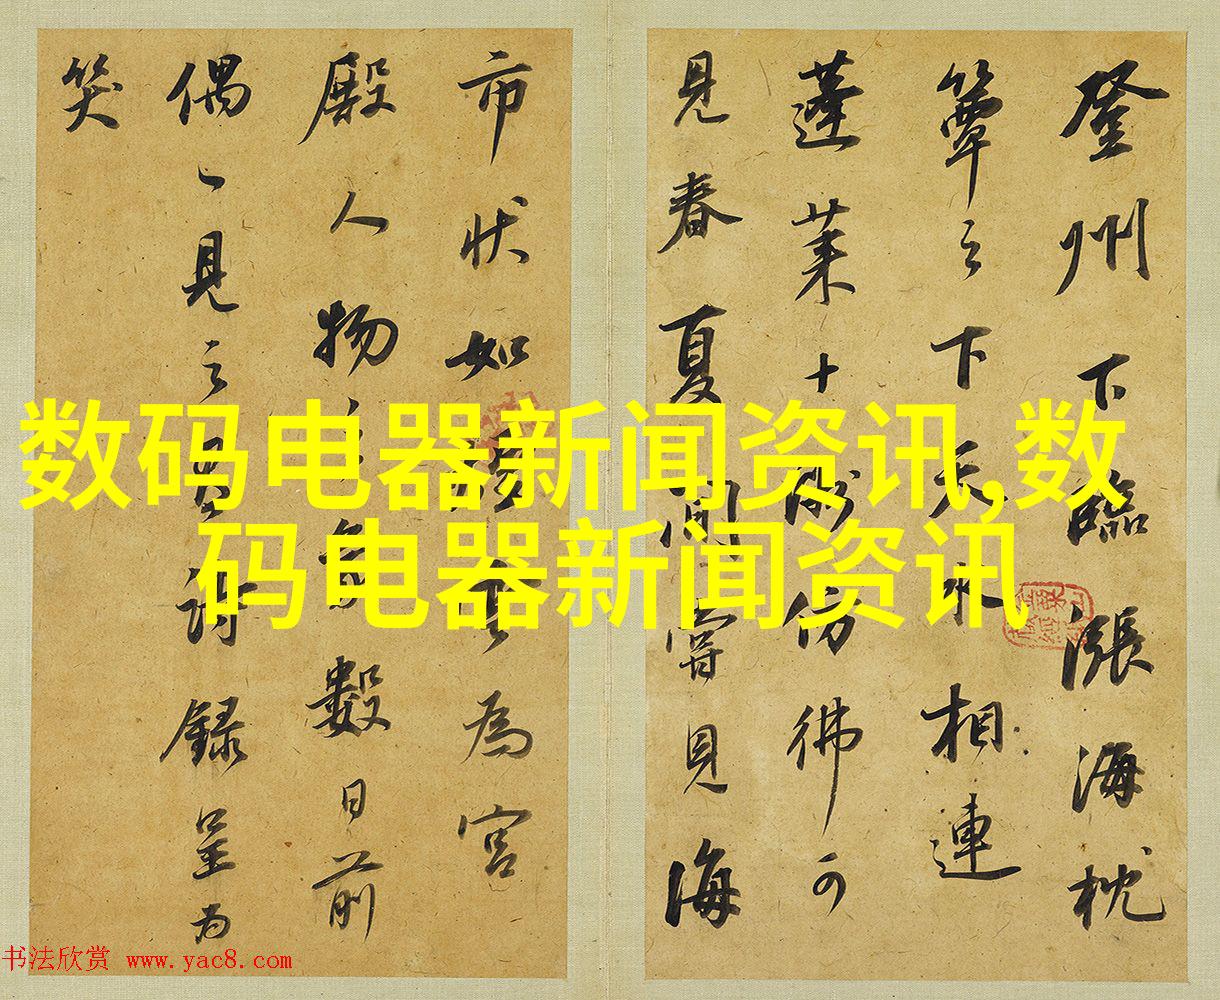 登州下臨漲海枕
簟之下天水相連
蓬萊十洲彷彿可
見春夏間嘗見海
市狀如為宮
殿人物之數日前
偶見之詩錄呈為
笑
数码电器新闻资讯,数
码电器新闻资讯
书法欣赏 www.yac8.com